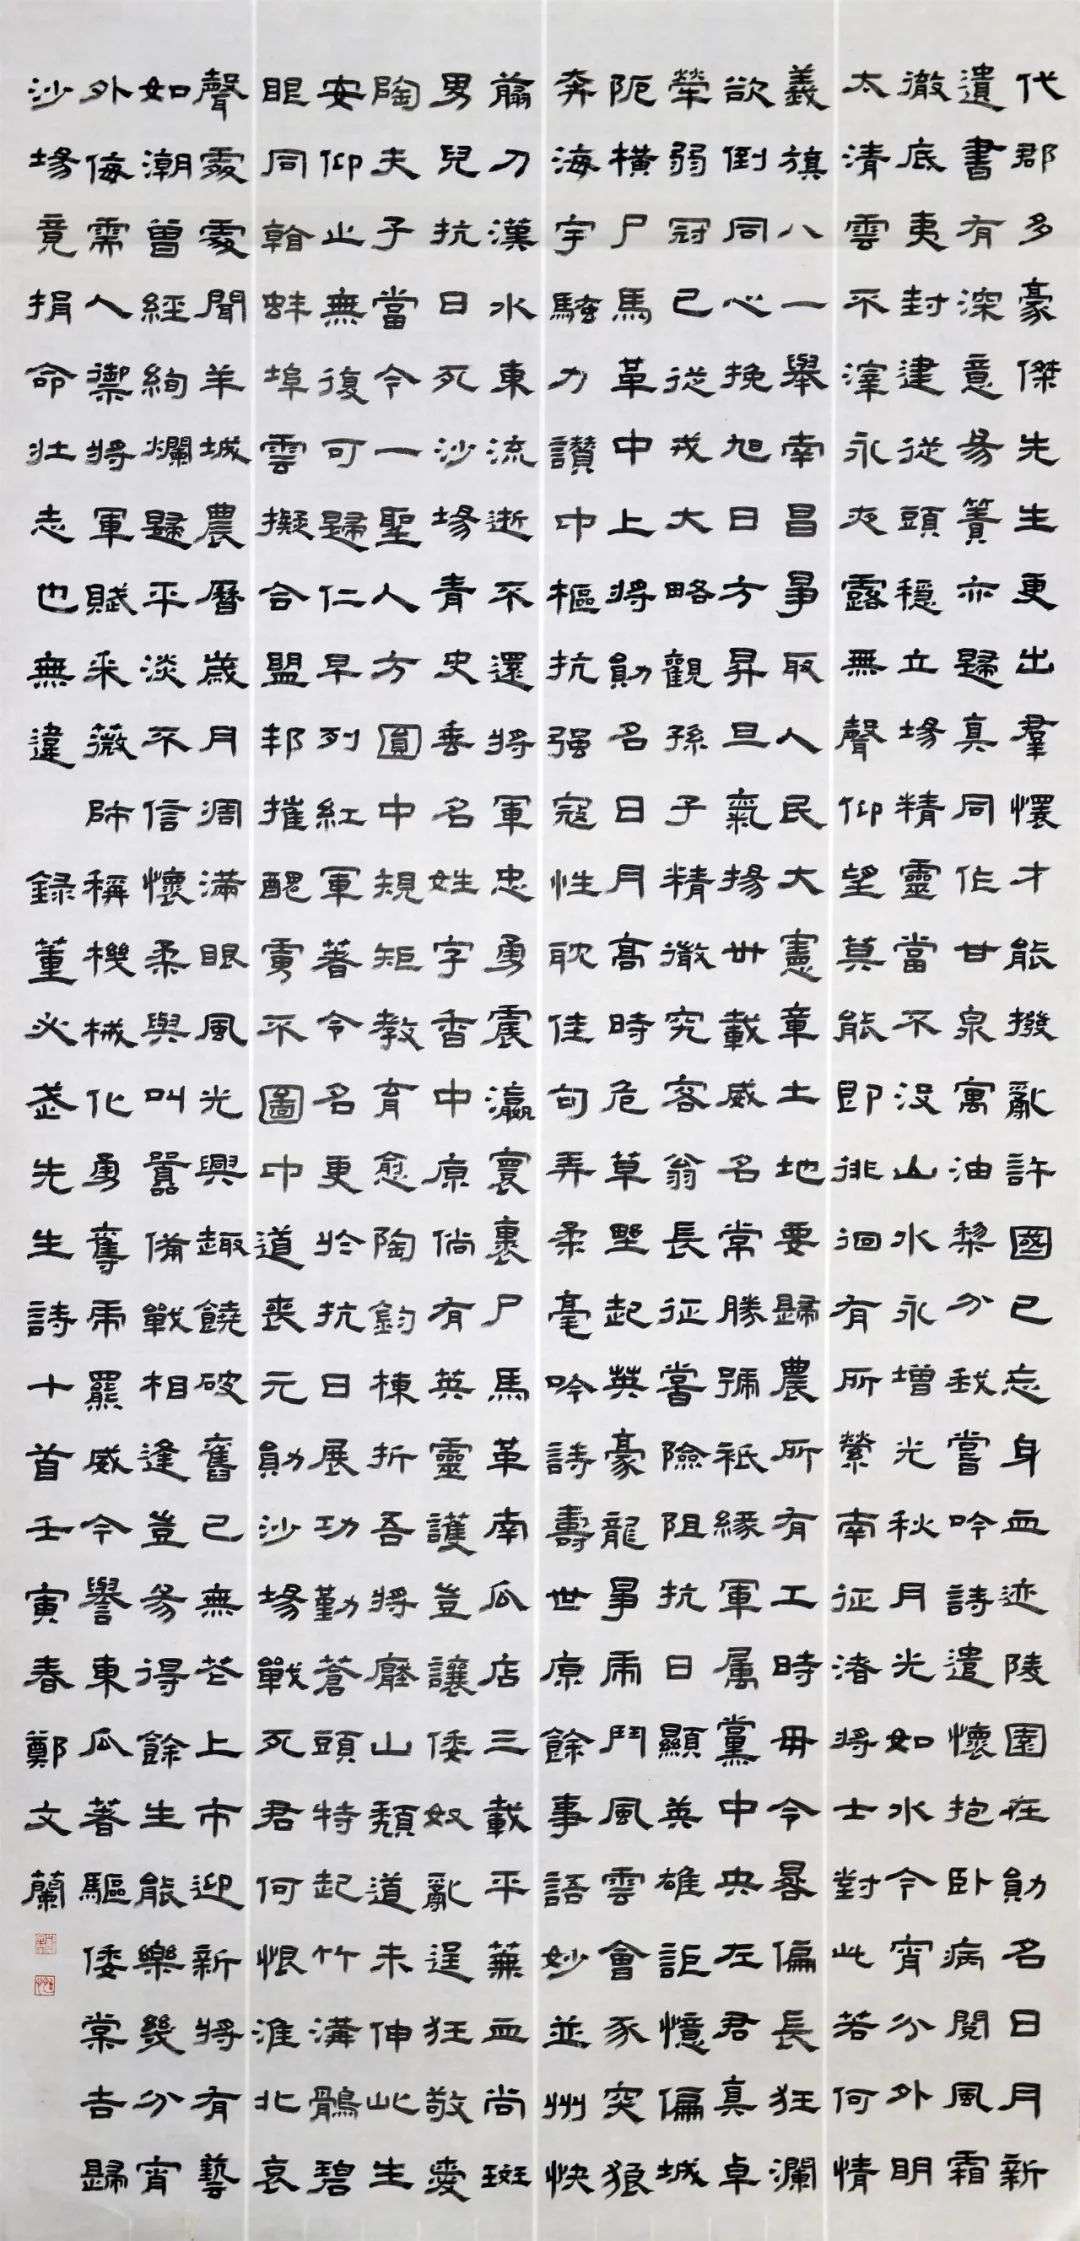 代郡多豪傑先生更出羣懷才能撥亂許國已忘身血迹陵園在勛名日月新
遺書有深意易簀亦歸真同作甘泉寓油棃分我嘗吟詩遣懷抱臥病閱風霜
徹底夷封建從頭穩立場精靈當不沒山水永增光秋月光如水今宵分外明
太清雲不滓永夜露無聲仰望莫能即徘徊有所縈南征渚將士對此若何情
義旗八一舉南昌爭取人民大憲章土地要歸農所有工時毋令晷偏長狂瀾
欲倒同心挽旭日方昇旦氣揚卅載威名常勝號祇緣軍属黨中央左君真卓
犖弱冠已從戎大略觀孫子精微究容翁長征嘗險阻抗日顯英雄詎憶偏城
阨橫尸馬革中上將勛名日月高時危草野起英豪龍爭虎鬥風雲會豕突狼
奔海宇騷力讚中樞抗强寇性耽佳句弄柔毫吟詩壽世原餘事語妙並州快
翦刀漢水東流逝不還將軍忠勇震瀛寰裹尸馬革南瓜店三載平蕪血尚斑
男兒抗日死沙場青史垂名姓字香中原倘有英靈護豈讓倭奴亂逞狂敬愛
陶夫子當今一聖人方圓中規矩教育愈陶鈞棟折吾將壓山頹道未伸此生
安仰止無復可歸仁早列紅軍著令名更於抗日展功勤蒼頭特起竹溝鶻碧
眼同翰蚌埠雲擬合盟邦摧醜虜不圖中道喪元勛沙場戰死君何恨淮北哀
聲處處聞羊城農曆歲月凋滿眼風光興趣饒破舊已無花上市迎新將有藝
如潮曾經絢爛歸平淡不信懷柔與叫囂備戰相逢豈易得餘生能樂幾分宵
外侮需人禦將軍賦采薇師稱機械化勇奪虎羆威今譽東瓜著驅倭棠吉歸
沙場竟捐命壯志也無違 錄董必武先生詩十首壬寅春鄭文蘭